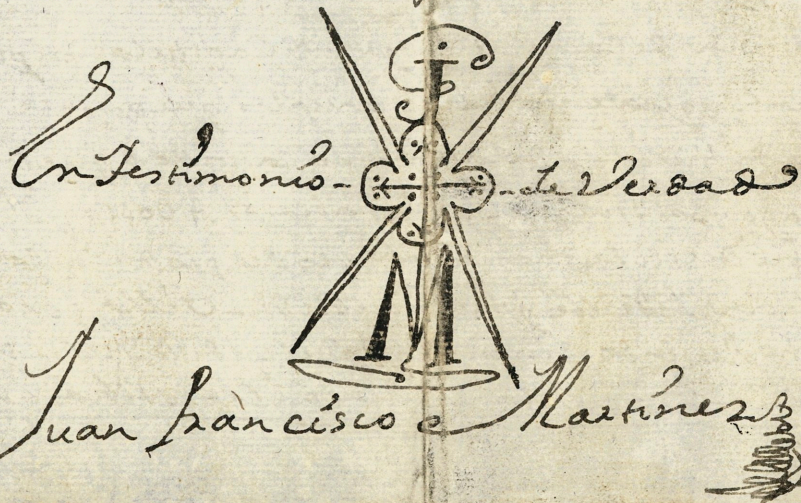 En Testimonio de Verdad
Juan Francisco Martinez